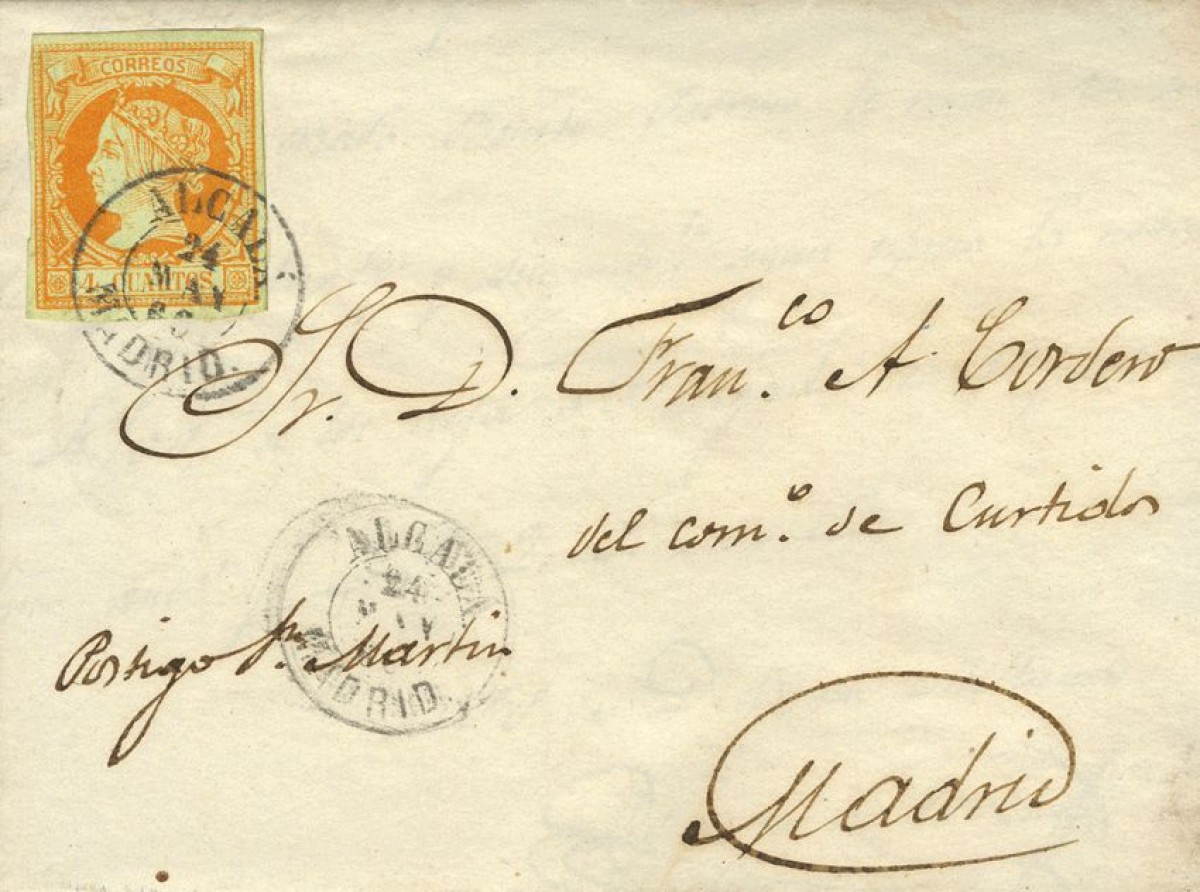 CORREOS
4 CUARTOS
ALCALÁ
24
MAY
60
MADRID.
Sr. D. Fran.co A Cordero
del com.o de Curtidos
ALCALÁ
24
MAY
MADRID
Postigo Sn. Martin
Madrid